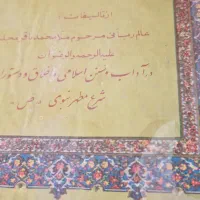 از تألیفات :
عالم ربانی مرحوم ملا محمد باقر
علیه الرحمه و الرضوان
در آداب و سنن اسلامی و اخلاق و دستور
شرع مطهر نبوی